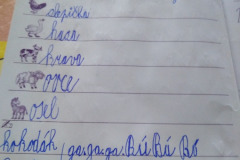 slepička
husa
kráva
ovce
osel
kokodák, ga, ga, ga. Bú Bú Bé